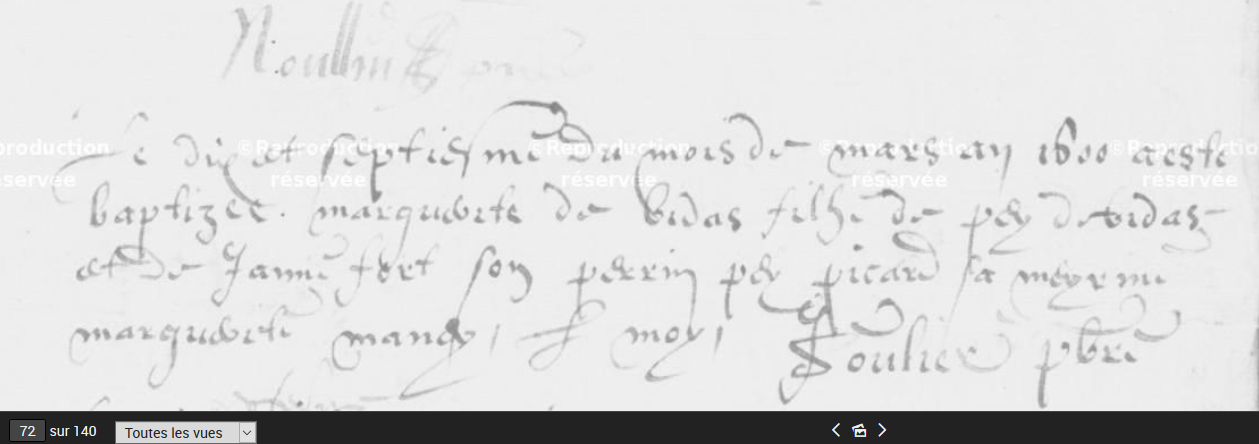 Le dix et septiesme du mois de mars an 1600 a este
baptizee. marguerite de vidas filhe de pey de vidas
et de Janne fort son perrin pey picard sa meyrine
marguerite mandy, moy, Soulier pbre
©Reproduction réservée ©Reproduction réservée ©Reproduction réservée ©Reproduction réservée ©Reproduction réservée
72 sur 140 Toutes les vues